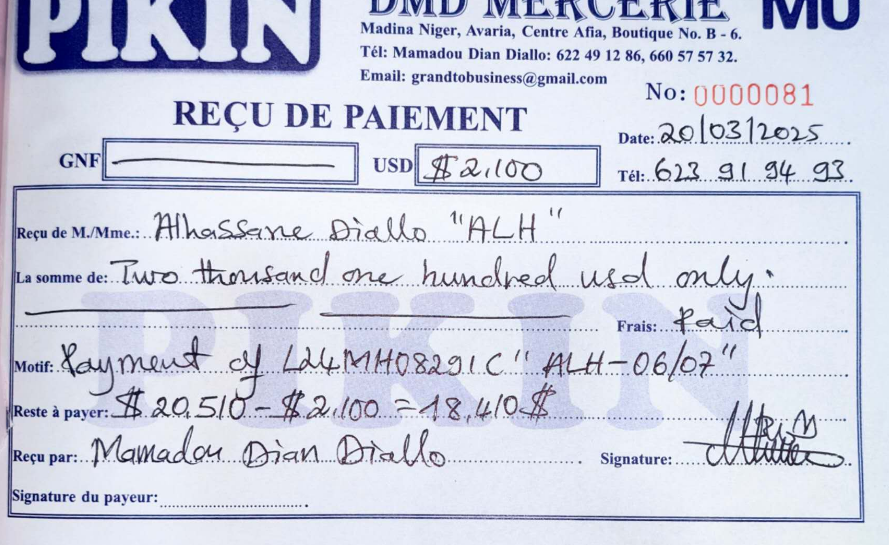 PIKIN
DMD MERCERIE
MU
Madina Niger, Avaria, Centre Afia, Boutique No. B - 6.
Tél: Mamadou Dian Diallo: 622 49 12 86, 660 57 57 32.
Email: grandtobusiness@gmail.com
No: 0000081
REÇU DE PAIEMENT
Date: 20/03/2025
GNF
USD $2,100
Tél: 623 91 94 93
Reçu de M./Mme.: Alhassane Diallo "ALH"
La somme de: Two thousand one hundred usd only.
Frais: Paid
Motif: Payment of L24MH08291C "ALH-06/07"
Reste à payer: $20,510-$2,100=18,410$
Reçu par: Mamadou Dian Diallo
Signature:
Signature du payeur:
PIKIN